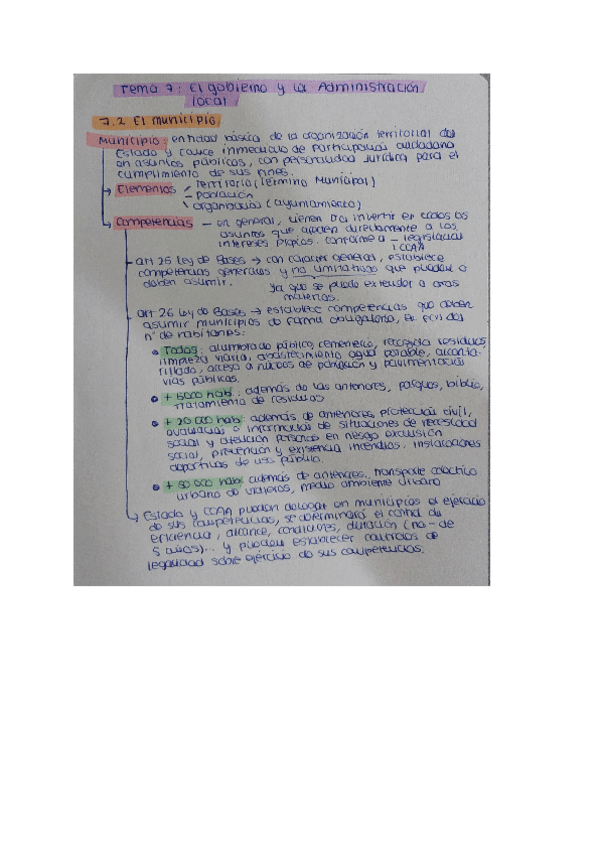 Tema 7: El gobierno y la Administración
local
7.2 El municipio
Municipio: entidad básica de la organización territorial del
Estado y cauce inmediato de participación ciudadana
en asuntos públicos, con personalidad jurídica para el
cumplimiento de sus fines.
Elementos - territorio (término Municipal)
- población
organización (ayuntamiento)
Competencias - en general, tienen dcho invertir en todos los
asuntos que afecten directamente a los
intereses propios. conforme a - legislación
CCAA
art 25 Ley de Bases → con carácter general, establece
competencias generales y no limitativas que pueden o
deben asumir.
ya que se puede extender a otras
materias.
art 26 Ley de Bases → establece competencias que deben
asumir municipios de forma obligatoria, en fcn del
nº de habitantes:
• Todos: alumbrado público, cementerio, recogida residuos,
limpieza viaria, abastecimiento agua potable, alcanta-
rillado, acceso a núcleos de población y pavimentación
vías públicas.
• + 5000 hab: además de las anteriores, parques, biblio,
tratamiento de residuos
• + 20 000 hab: además de anteriores, protección civil,
evaluación e información de situaciones de necesidad
social y atención personas en riesgo exclusión
social, prevención y existencia incendios. instalaciones
deportivas de uso público.
• + 50 000 hab: además de anteriores, transporte colectivo
urbano de viajeros, medio ambiente urbano
Estado y CCAA pueden delegar en municipios el ejercicio
de sus competencias, se determinará el control de
eficiencia, alcance, condiciones, duración (no - de
5 años)... y pueden establecer controles de
legalidad sobre ejercicio de sus competencias.